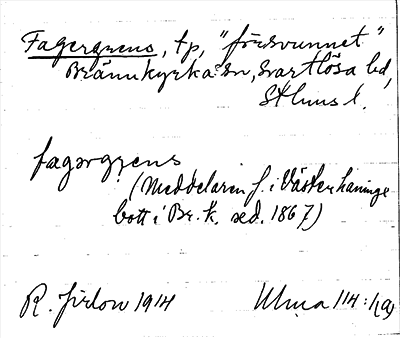 Fagergrens, tp, "försvunnet"
Brännkyrka sn, Svartlösa hd,
Sthlms l.
fagərgręns
(Meddelaren f. i Västerhaninge
bott i Br.k. sed. 1867)
R. Jirlow 1914 Ulma 114:1(a)